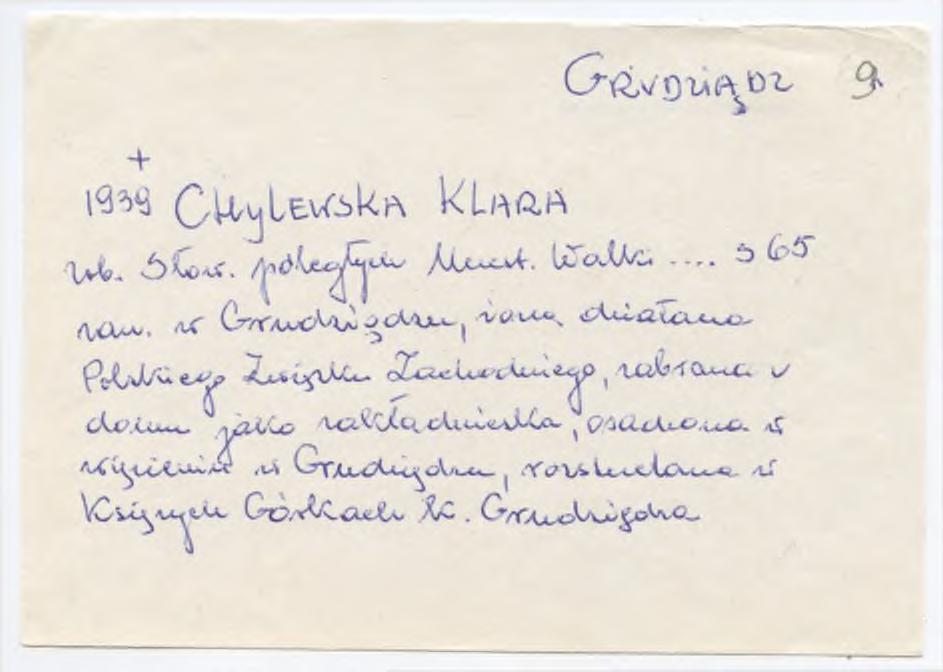 GRUDZIĄDZ 9.
+
1939 CHYLEWSKA KLARA
zob. Słow. poległych Uczest. Walki .... s 65
zam. w Grudziądzu, żona działacza
Polskiego Związku Zachodniego, zabrana z
domu jako zakładniczka, osadzona w
więzieniu w Grudziądzu, rozstrzelana w
Księżych Górkach k. Grudziądza